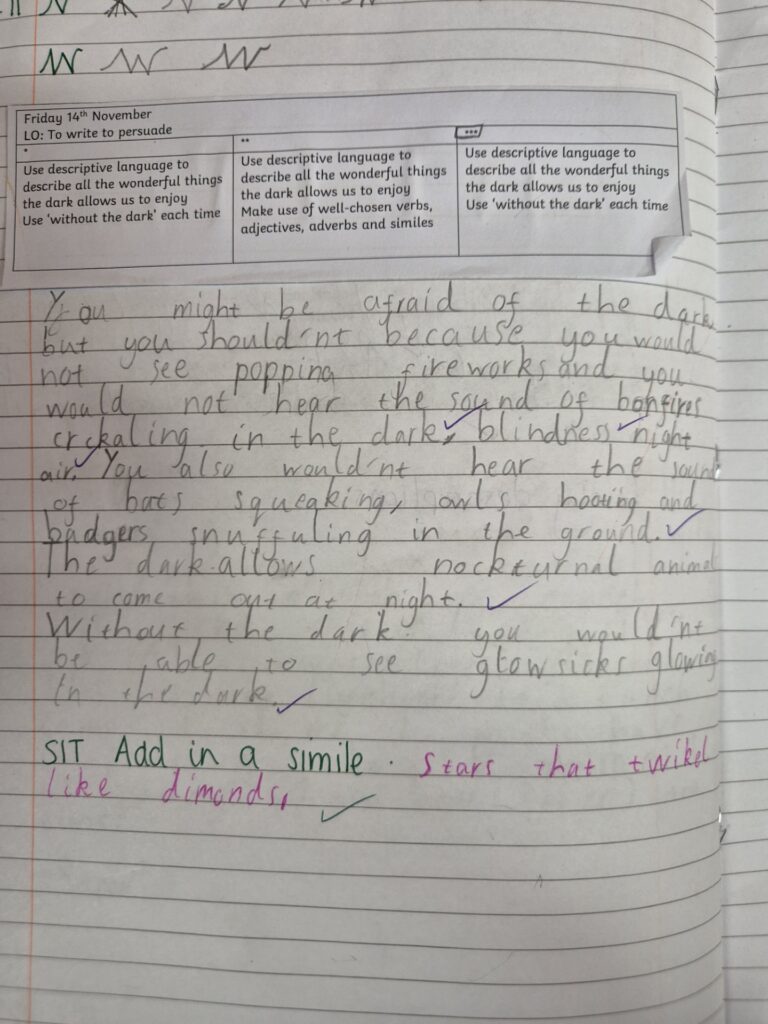 Friday 14th November
LO: To write to persuade
*
Use descriptive language to
describe all the wonderful things
the dark allows us to enjoy
Use 'without the dark' each time
**
Use descriptive language to
describe all the wonderful things
the dark allows us to enjoy
Make use of well-chosen verbs,
adjectives, adverbs and similes
***
Use descriptive language to
describe all the wonderful things
the dark allows us to enjoy
Use 'without the dark' each time
You might be afraid of the dark.
but you should'nt because you would
not see popping fireworks and you
would not hear the sound of bonfires
crckaling in the dark, blindness night
air. You also would'nt hear the sound
of bats squeaking, owls hooting and
badgers snuffuling in the ground.
The dark allows nockturnal animal
to come out at night.
Without the dark you would'nt
be able to see glowsicks glowing
in the dark.
SIT Add in a simile. Stars that twikel
like dimonds.